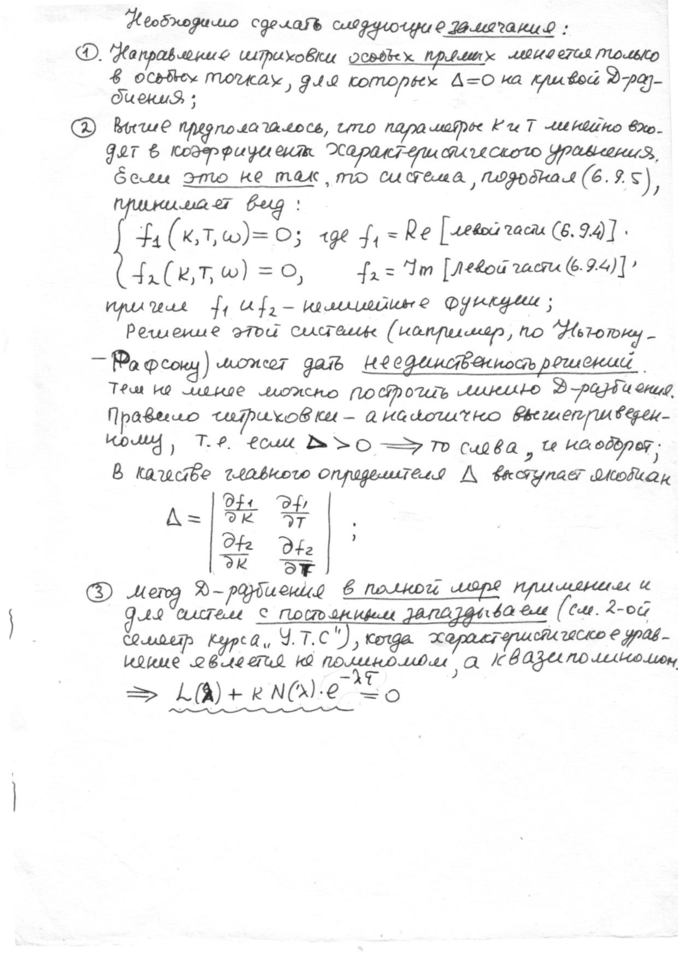 Необходимо сделать следующие замечания:
① Направление штриховки особых прямых меняется только
в особых точках, для которых Δ=0 на кривой D-раз-
биения;
② Выше предполагалось, что параметры K и T линейно вхо-
дят в коэффициенты характеристического уравнения.
Если это не так, то система, подобная (6.9.5),
принимает вид:
{ f₁(K,T,ω)=0; где f₁ = Re [левой части (6.9.4)].
{ f₂(K,T,ω) = 0, f₂ = Im [левой части (6.9.4)],
причем f₁ и f₂ – нелинейные функции;
Решение этой системы (например, по Ньютону-
– Рафсону) может дать неединственность решений.
Тем не менее можно построить линию D-разбиения.
Правило штриховки – аналогично вышеприведен-
ному, т.е. если Δ>0 ⟹ то слева, и наоборот;
В качестве главного определителя Δ выступает якобиан
Δ = | ∂f₁/∂K ∂f₁/∂T |
| ∂f₂/∂K ∂f₂/∂T | ;
③ Метод D-разбиение в полной мере применим и
для систем с постоянным запаздываем (см. 2-ой
семестр курса „У.Т.С"), когда характеристическое урав-
нение является не полиномом, а квазиполиномом,
⟹ L(λ) + K N(λ)·e^(-λτ) = 0